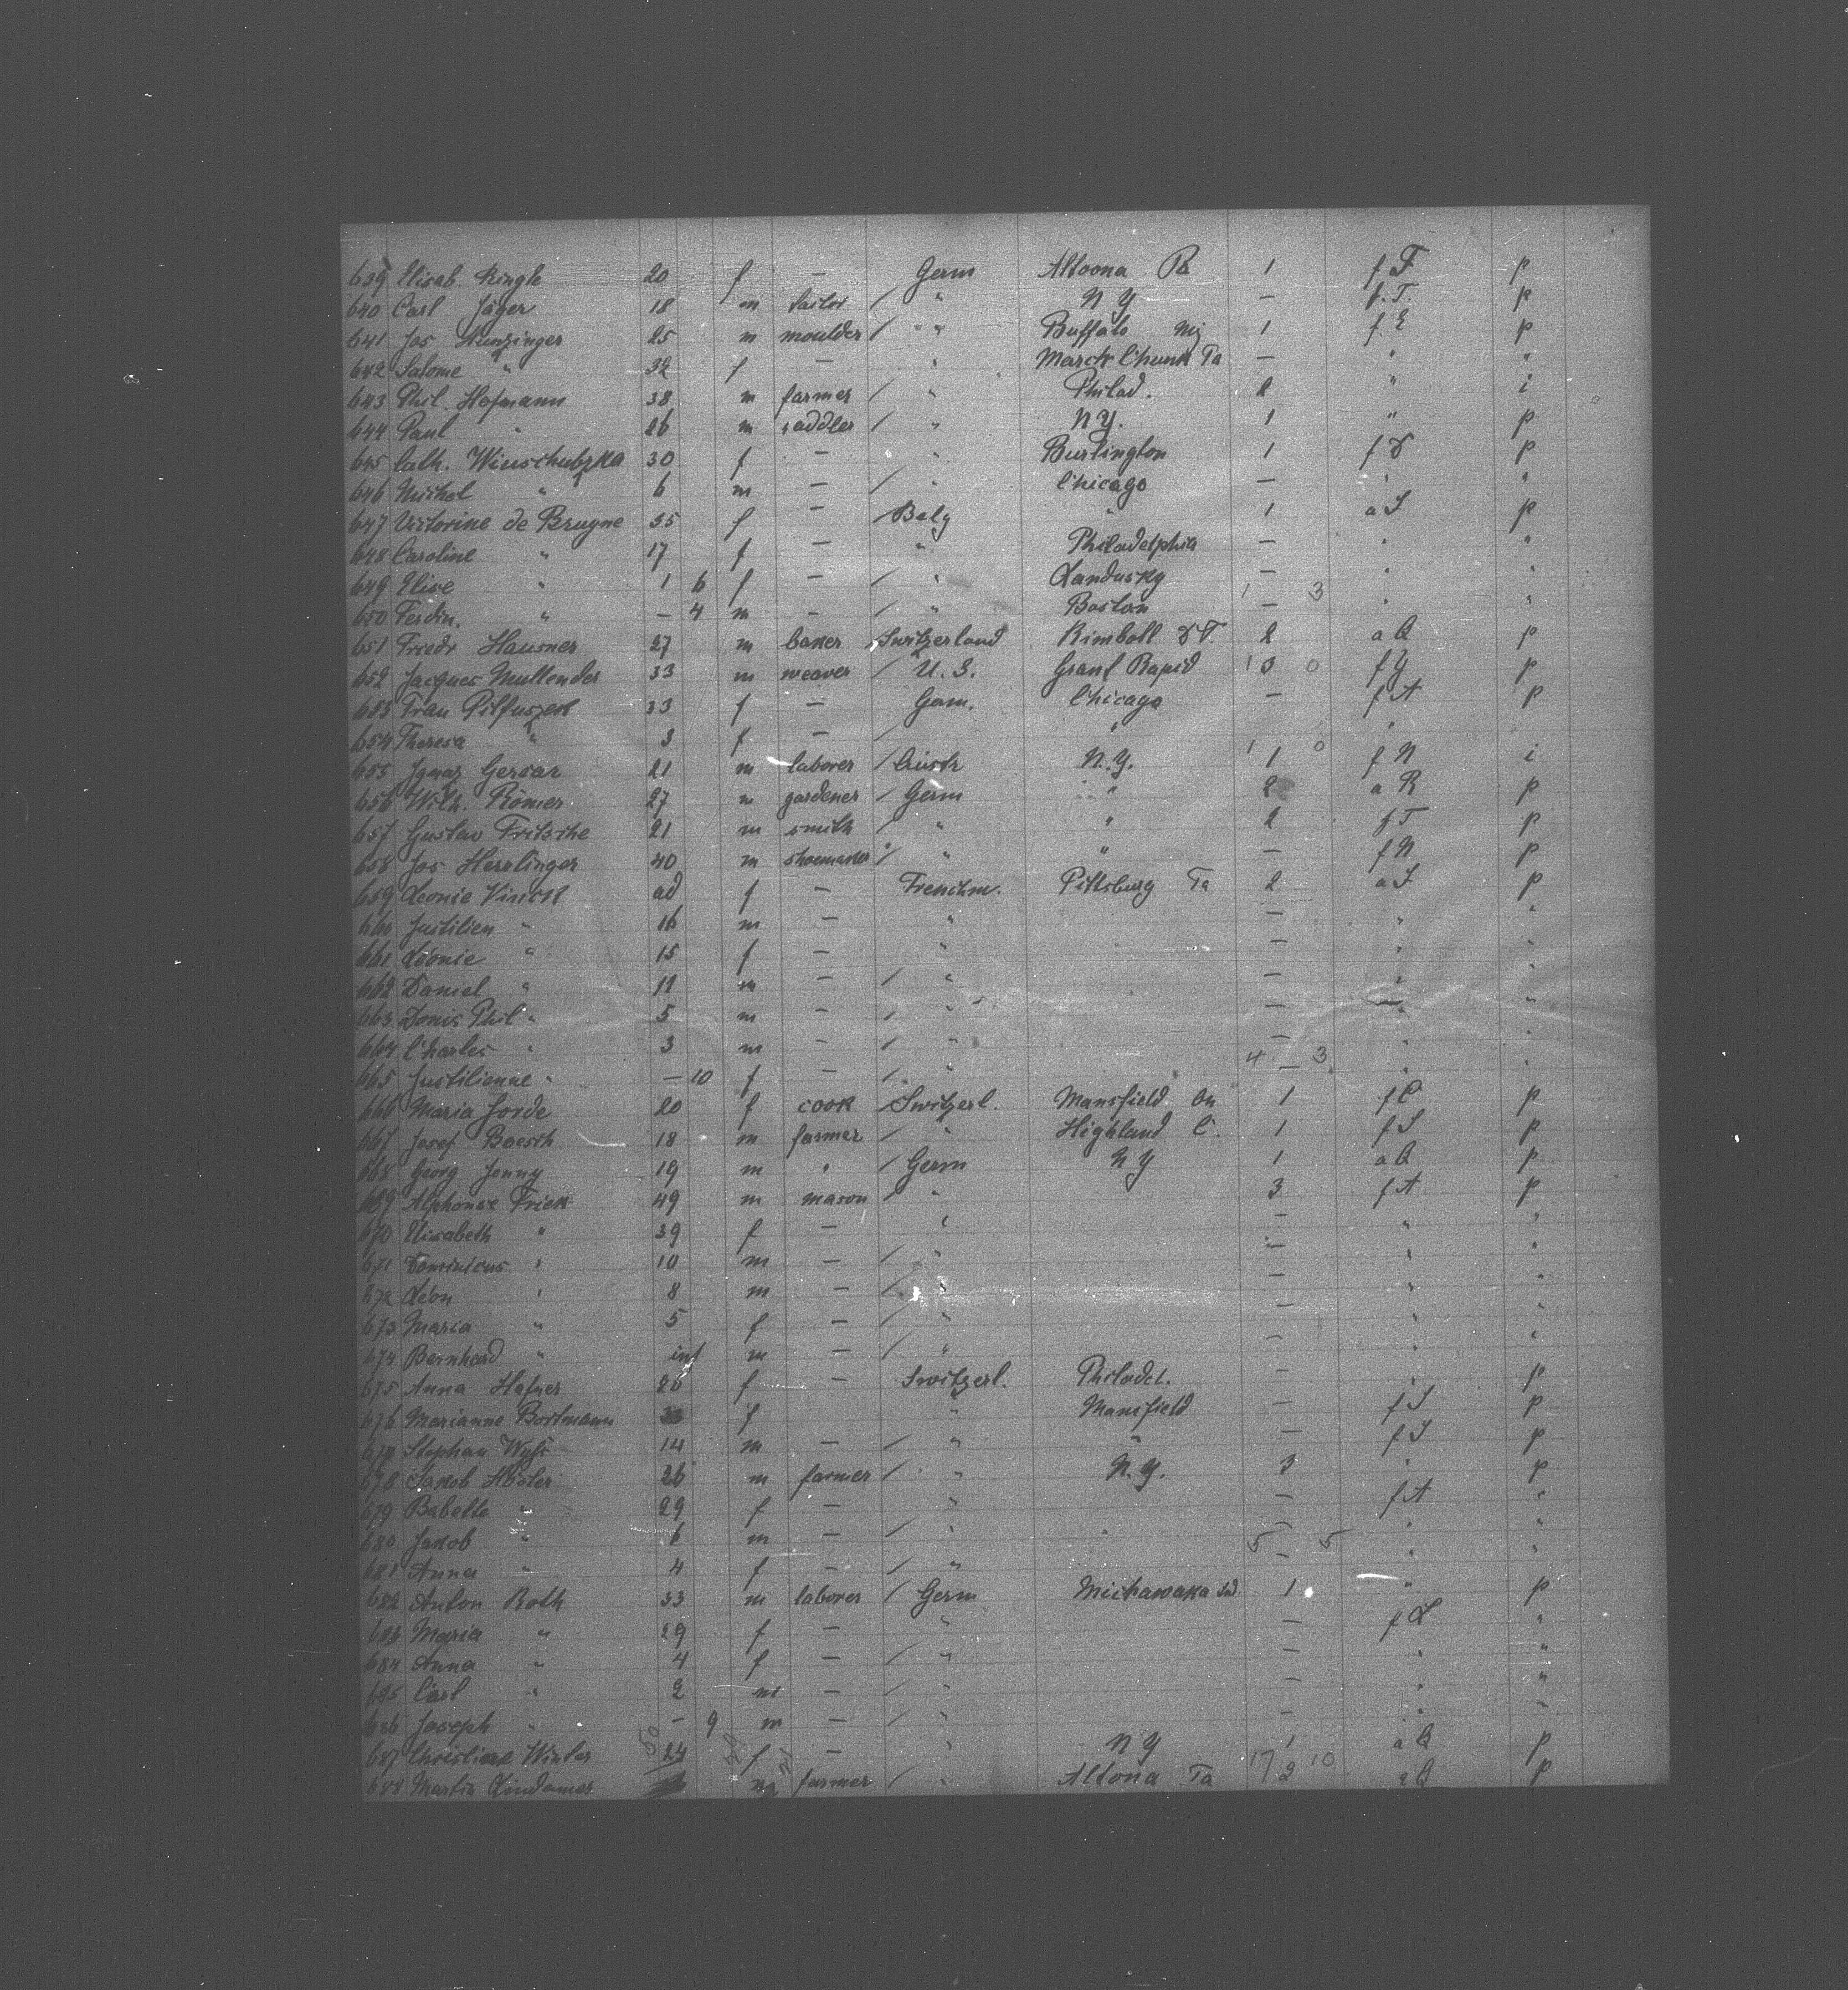 639 Elisab. Ringle 20 f — Germ Altoona Pa 1 f F p
640 Carl Jäger 18 m tailor / " N Y — f. T. p
641 Jos Hunzinger 25 m moulder / " " Buffalo 1 f E p
642 Salome " 32 f — " March Chunk Pa — " "
643 Phil. Hofmann 38 m farmer / " Philad. 2 " i
644 Paul " 26 m saddler / " N Y. 1 " p
645 Cath. Winschutzka 30 f — " Burlington 1 p
646 Michel " 6 m — / " Chicago — " "
647 Victorine de Brugne 35 f — / Belg " 1 a S p
648 Caroline " 17 f — " Philadelphia — " "
649 Elise " 1 6 f — / " Sandusky — " "
1 3
650 Ferdin. " — 4 m — / " Boston — " "
651 Friedr Hausner 27 m baker / Switzerland Kimboll D T. 2 a B p
652 Jacques Mullender 33 m weaver / U. S. Grant Rapid 1 3 0 f G p
653 Frau 33 f — Germ. Chicago — f A p
654 Theresa " 3 f — / "
655 Ignaz Gersar 21 m laborer / Austr N. Y. 1 1 0 f N i
656 Wilh. Römer 27 m gardener / Germ " 2 a R p
657 Gustav Fritsche 21 m smith / " " 2 f T p
658 Jos Herrlinger 40 m shoemaker / " " — f N p
659 Leonie Vinck ad f — Frenchm. Pittsburg Pa 2 a S p
660 Justilien " 16 m — " — " "
661 Léonie " 15 f — " — " "
662 Daniel " 11 m — / " — " "
663 Phil " 5 m — / " — " "
664 Charles " 3 m — / " — " "
4 3
665 Justilienne " — 10 f — / " — " "
666 Maria Jorde 20 f cook / Switzerl. Mansfield 1 f C p
667 Josef Boesch 18 m farmer / " Highland 1 f S p
668 Georg Jenny 19 m " / Germ N Y 1 a B p
669 Alphonse Frick 49 m mason / " 3 f A p
670 Elisabeth " 39 f — " — " "
671 Dominicus " 10 m — / " — " "
672 Léon " 8 m — / " — " "
673 Maria " 5 f — / " — " "
674 Bernhard " inf m — / " — " "
675 Anna Hafner 20 f — Switzerl. Philadel. — " p
676 Marianne Bortmann f " Mansfield — f S p
677 Stephan Wyss 14 m — / " " — f S p
678 Jakob Hösler 26 m farmer / " N. Y. 3 " p
679 Babette " 29 f — " — f A "
680 Jakob " 6 m — / " " — " "
5 5
681 Anna " 4 f — / " — " "
682 Anton Roth 33 m laborer / Germ Michawaka Ind 1 " p
683 Maria " 29 f — " — f L "
684 Anna " 4 f — / " — " "
685 Carl " 2 m — / " — " "
686 Joseph " — 9 m — / " — " "
687 Christiane Winter 24 f — " N Y 1 a B p
50 17 10
688 Martin Lindamer m farmer / " Altona Pa 2 a B p